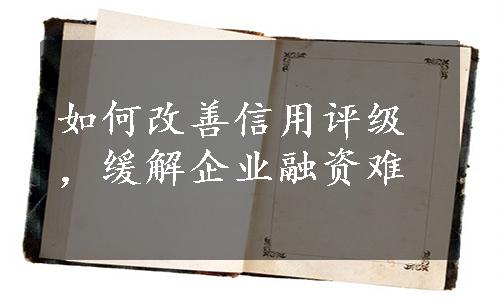 如何改善信用评级
，缓解企业融资难